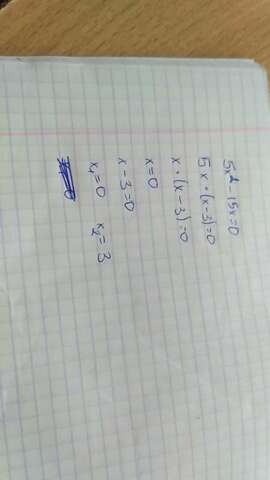 5x² - 15x=0
5x · (x-3)=0
x · (x-3)=0
x=0
x-3=0
x₁=0 x₂=3